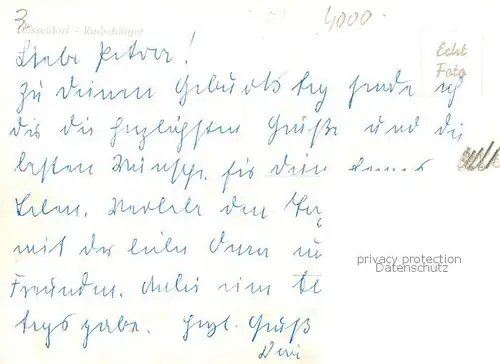 3.-
4000
Düsseldorf - Radschläger
Echt
Foto
Liebe Petra!
Zu Deinem Geburtstag sende ich
dir die herzlichsten Grüße und die
besten Wünsche für Dein
Leben. Verlebe den
mit der lieben Oma
Freunden. anbei eine
Herzl. Gruß
privacy protection
Datenschutz